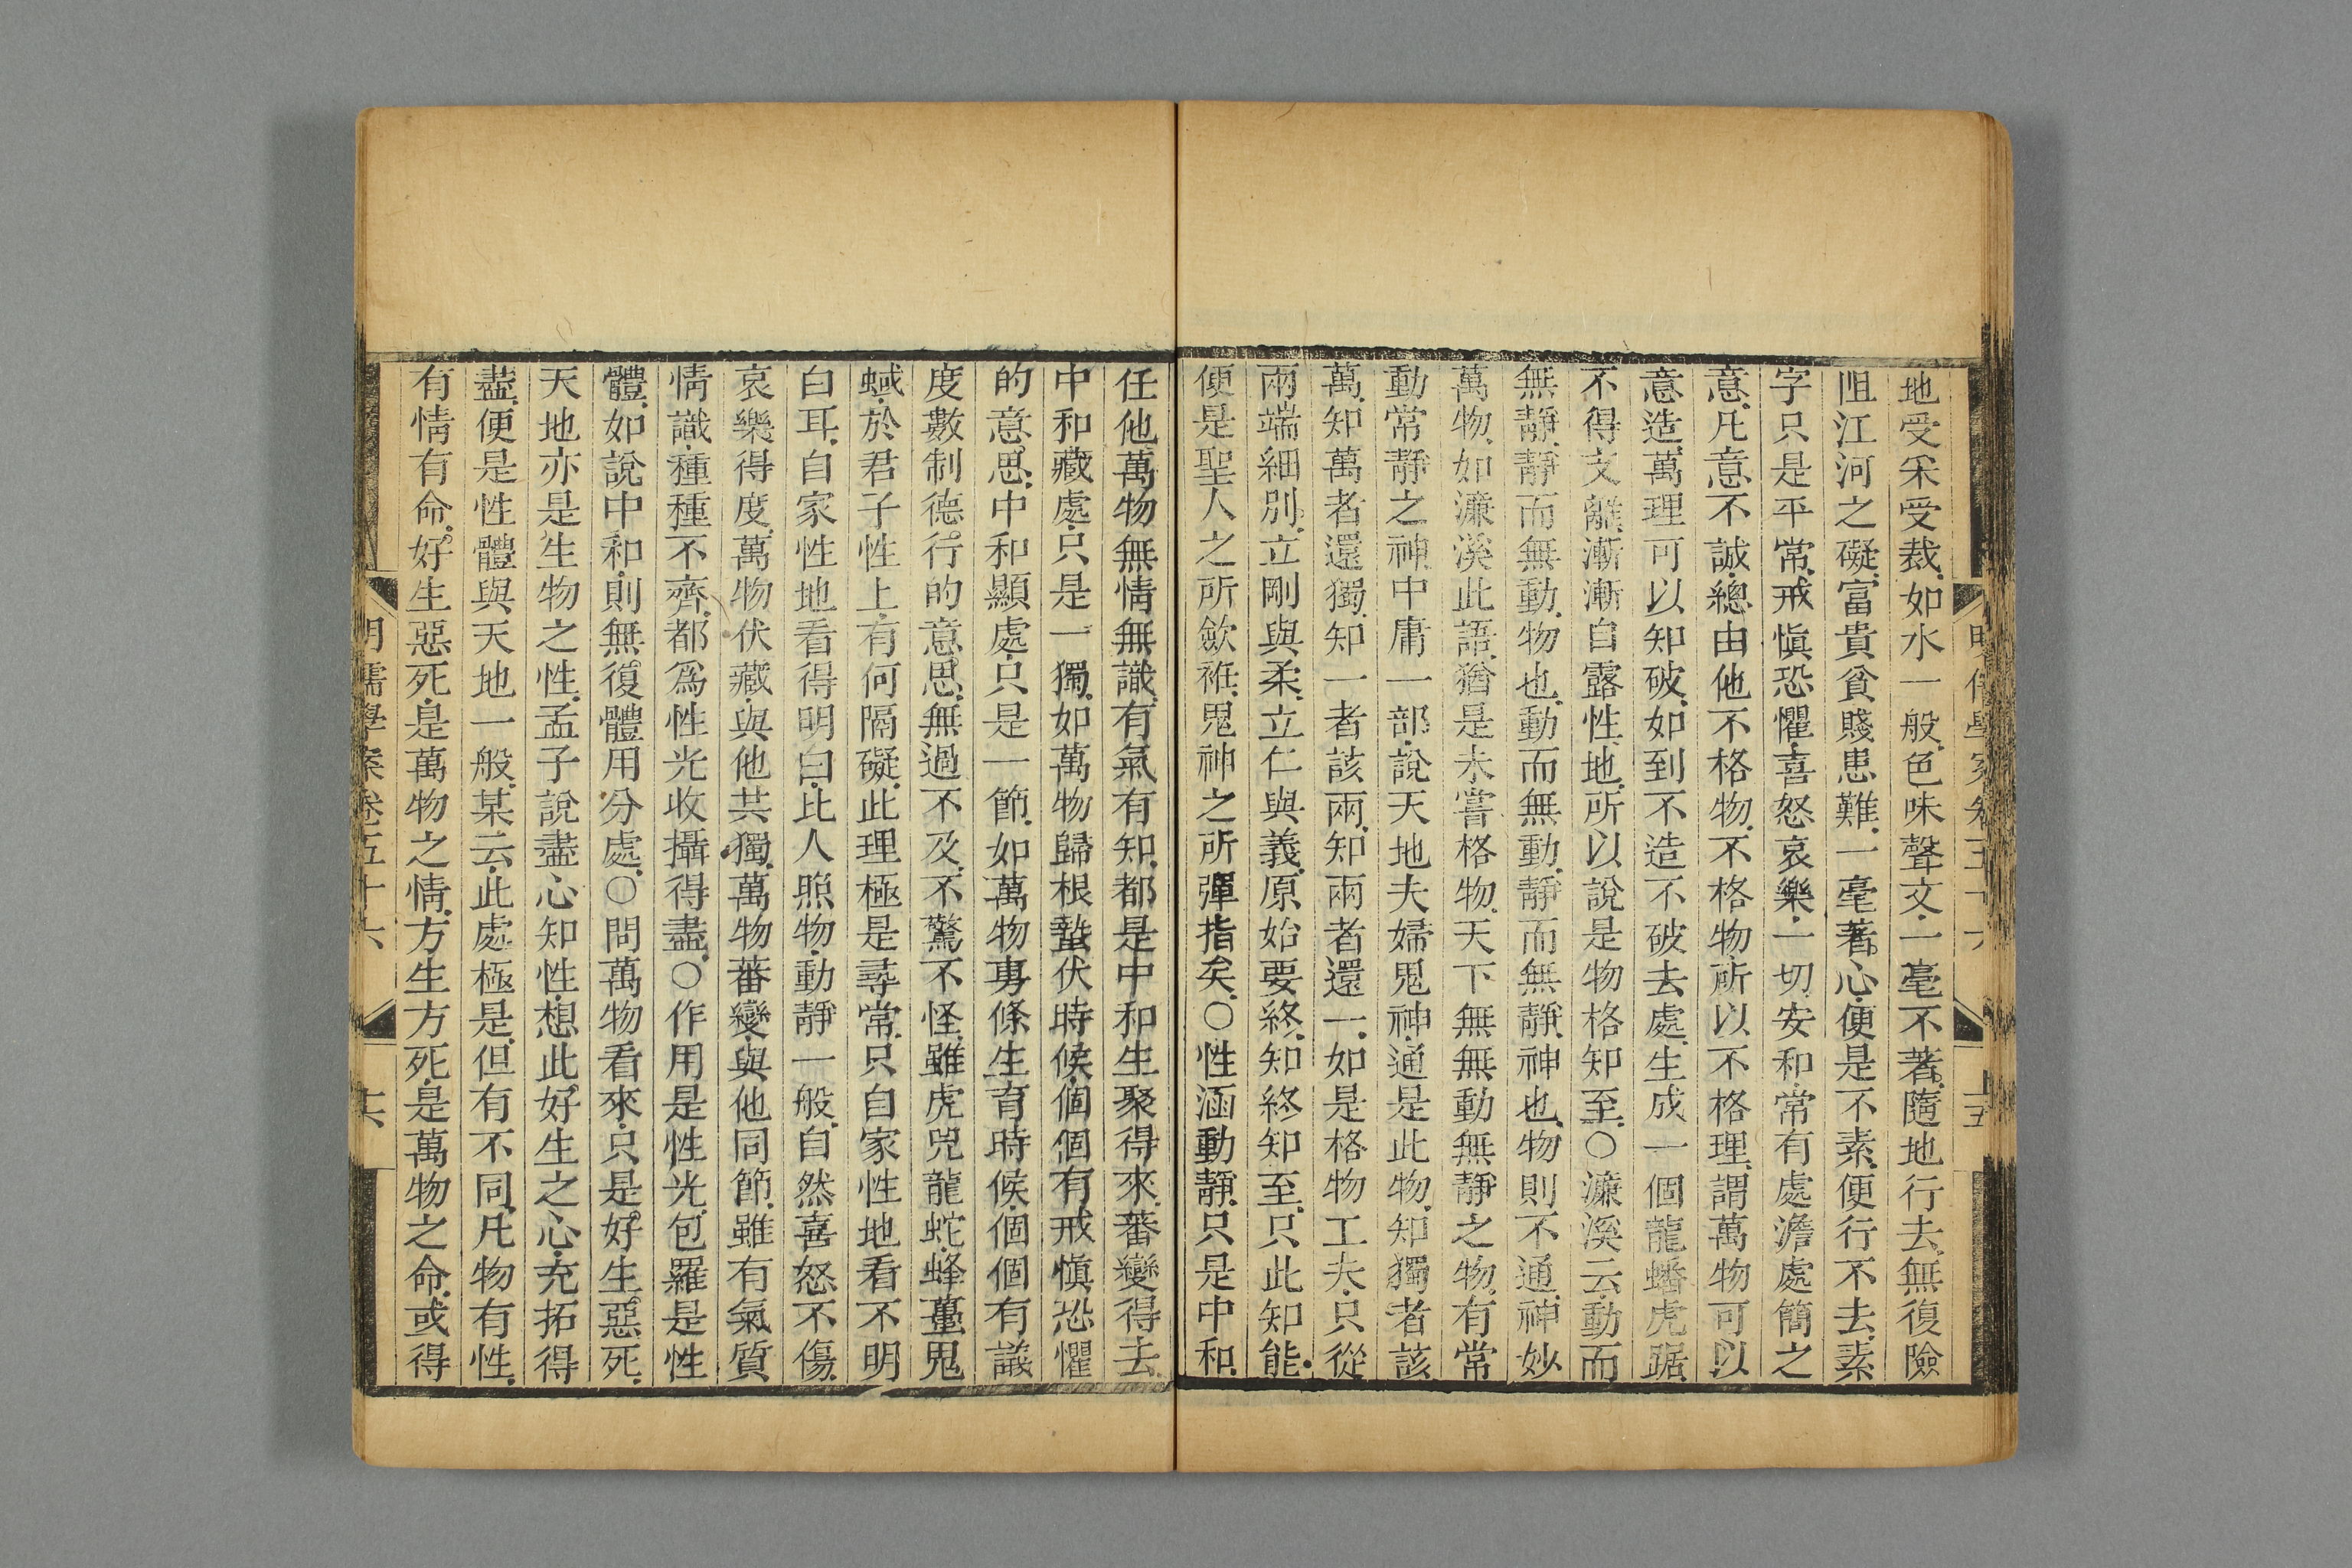 地受采受裁如水一般色味聲文一毫不著隨地行去無復險
阻江河之礙富貴貧賤患難一毫著心便是不素便行不去素
字只是平常戒愼恐懼喜怒哀樂一切安和常有處澹處簡之
意凡意不誠總由他不格物不格物所以不格理謂萬物可以
意造萬理可以知破如到不造不破去處生成一個龍蟠虎踞
不得支離漸漸自露性地所以說是物格知至○濂溪云動而
無靜靜而無動物也動而無動靜而無靜神也物則不通神妙
萬物如濂溪此語猶是未嘗格物天下無無動無靜之物有常
動常靜之神中庸一部說天地夫婦鬼神通是此物知獨者該
萬知萬者還獨知一者該兩知兩者還一如是格物工夫只從
兩端細別立剛與柔立仁與義原始要終知終知至只此知能
便是聖人之所歛袵鬼神之所彈指矣○性涵動靜只是中和
任他萬物無情無識有氣有知都是中和生聚得來蕃變得去
中和藏處只是一獨如萬物歸根蟄伏時候個個有戒愼恐懼
的意思中和顯處只是一節如萬物專條生育時候個個有議
度數制德行的意思無過不及不驚不怪雖虎兕龍蛇蜂蠆鬼
蜮於君子性上有何隔礙此理極是尋常只自家性地看不明
白耳自家性地看得明白比人照物動靜一般自然喜怒不傷
哀樂得度萬物伏藏與他共獨萬物蕃變與他同節雖有氣質
情識種種不齊都爲性光收攝得盡○作用是性光包羅是性
體如說中和則無復體用分處○問萬物看來只是好生惡死
天地亦是生物之性孟子說盡心知性想此好生之心充拓得
盡便是性體與天地一般某云此處極是但有不同凡物有性
有情有命好生惡死是萬物之情方生方死是萬物之命或得
明儒學案卷五十六
十六